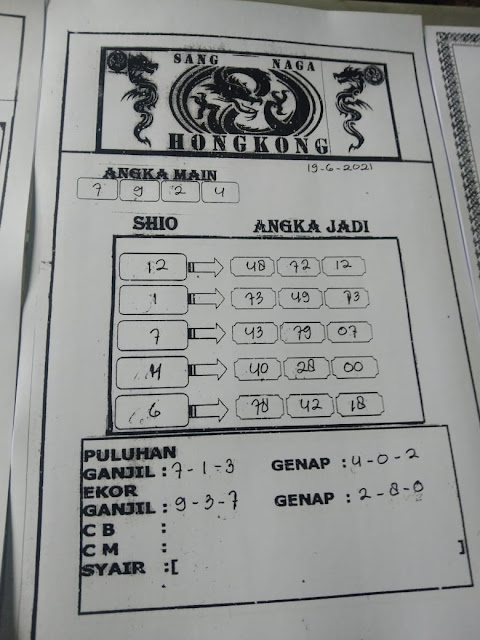 SANG NAGA
HONGKONG
19-6-2021
ANGKA MAIN
7 9 2 4
SHIO ANGKA JADI
12 48 72 12
1 73 49 73
7 43 79 07
4 40 28 00
6 78 42 18
PULUHAN
GANJIL : 7-1-3 GENAP : 4-0-2
EKOR
GANJIL : 9-3-7 GENAP : 2-8-0
C B :
C M :
SYAIR :[ ]